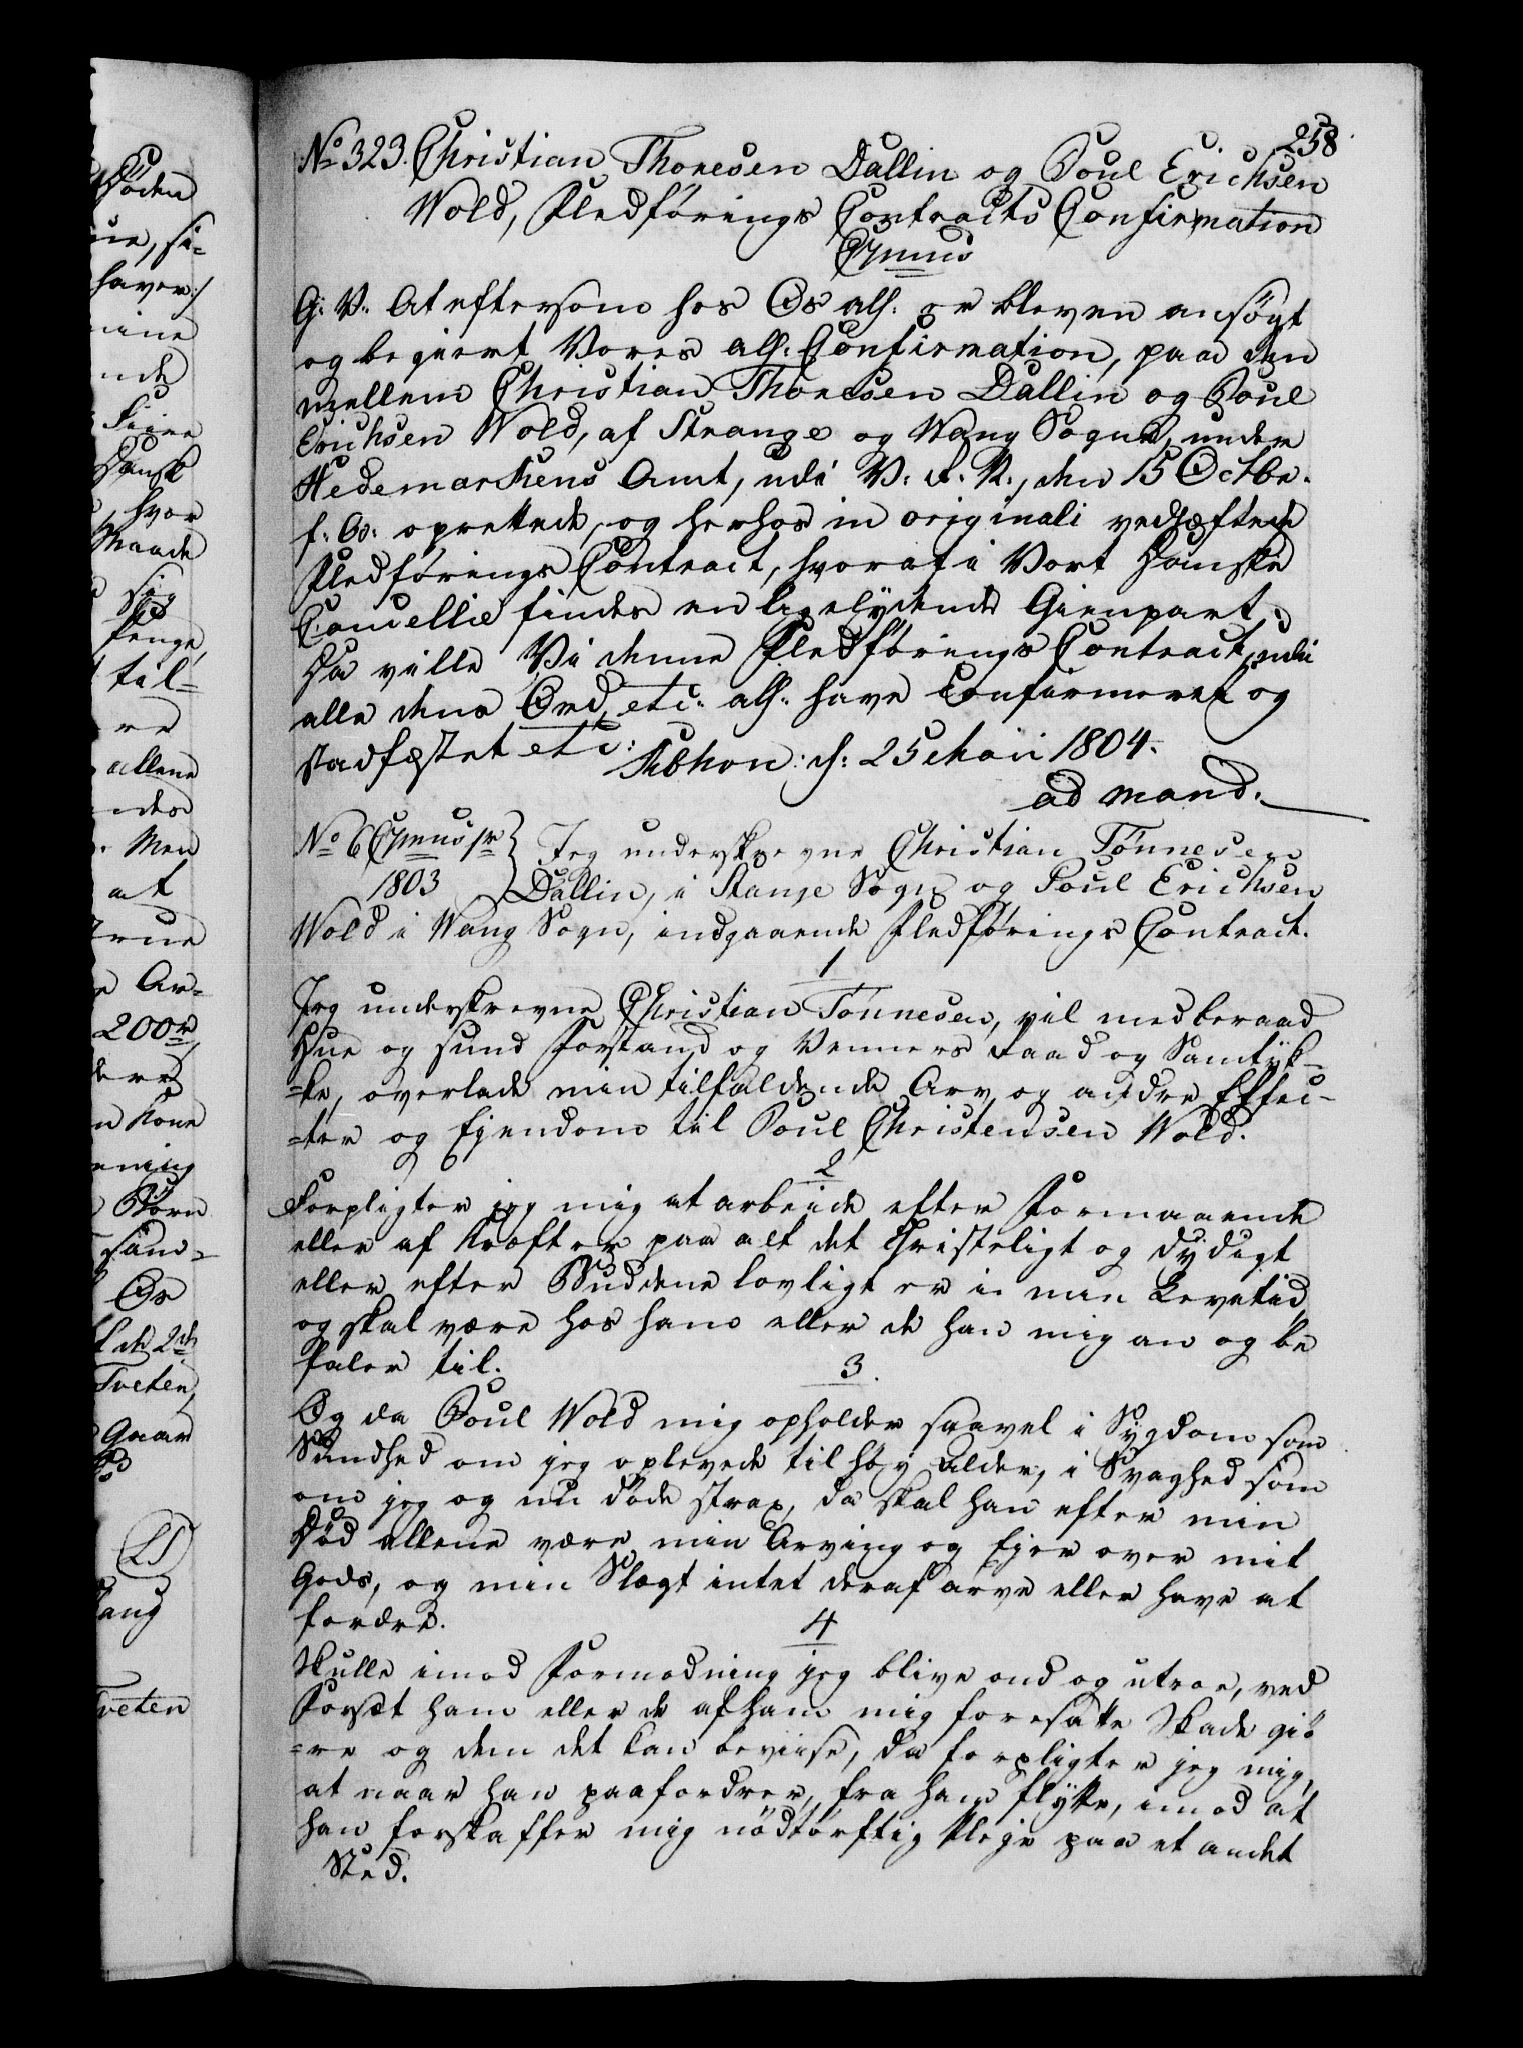 258
No 323. Christian Thonesen Dallin og Poul Erichsen
Wold, Fledførings Contracts Confirmation
Gmus
G: V: At eftersom hos Os alh. er bleven ansøgt
og begiert Vores alh. Confirmation, paa den
mellem Christian Thonesen Dallin og Poul
Erichsen Wold, af Strange og Wang Sogne, under
Hedemarkens Amt, udi V: R: N:, den 15 Octbr.
f: A: oprettede, og herhos in originali vedhæftede
Fledførings Contract, hvoraf i Vort Danske
Cancellie findes en ligelydende Gienpart;
Da ville Vi denne Fledførings Contract, udi
alle dens Ord, etc: alh. have Confirmeret og
stadfæstet etc:
Kbhvn: d: 25 Maii 1804.
ad mand.
No 6 Gmus pr
1803
Jeg underskrevne Christian Tønnesen
Dallin, i Stange Sogn og Poul Erichsen
Wold i Wang Sogn, indgaaende Fledførings Contract.
1
Jeg underskrevne Christian Tønnesen, vil med beraad
Hue og sund Forstand og Venners Raad og Samtyk-
=ke, overlade min tilfaldende Arv og andre Effec-
=ter og Ejendom til Poul Christensen Wold.
2
Forpligter jeg mig at arbeide efter Formaaende
eller af Kræfter paa alt det Christeligt og dydigt
eller efter Buddene lovligt er i min Levetid,
og skal være hos ham eller de han mig an og be
faler til.
3.
Og da Poul Wold mig opholder saavel i Sygdom som
Sundhed om jeg oplevede til høy Alder, i Svaghed som
om jeg og nu døde strax, da skal han efter min
Død allene være min Arving og Ejer over mit
Gods, og min Slægt intet deraf arve eller have at
fordre.
4
Skulle imod Formodning jeg blive ond og utroe, ved
Forsæt ham eller de af ham mig foresatte Skade giö
=re og dem det kan beviise, da forpligter jeg mig,
at naar han paafordrer, fra ham flytte, imod at
han forskaffer mig nödtørftig Pleje paa et andet
Sted.